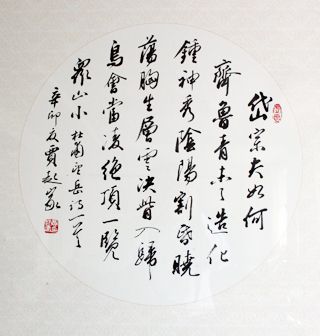 岱宗夫如何
齊魯青未了造化
鍾神秀陰陽割昏曉
蕩胸生層雲決眥入歸
鳥會當凌絕頂一覽
眾山小杜甫望岳詩一首
辛卯夏賈